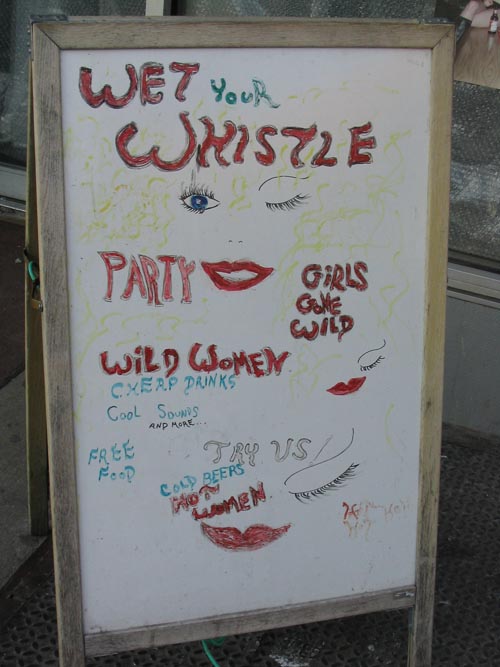 WET YOUR
WHISTLE
PARTY
GIRLS
GONE
WILD
WILD WOMEN
CHEAP DRINKS
COOL SOUNDS
AND MORE...
TRY US
FREE
FOOD
COLD BEERS
HOT
WOMEN